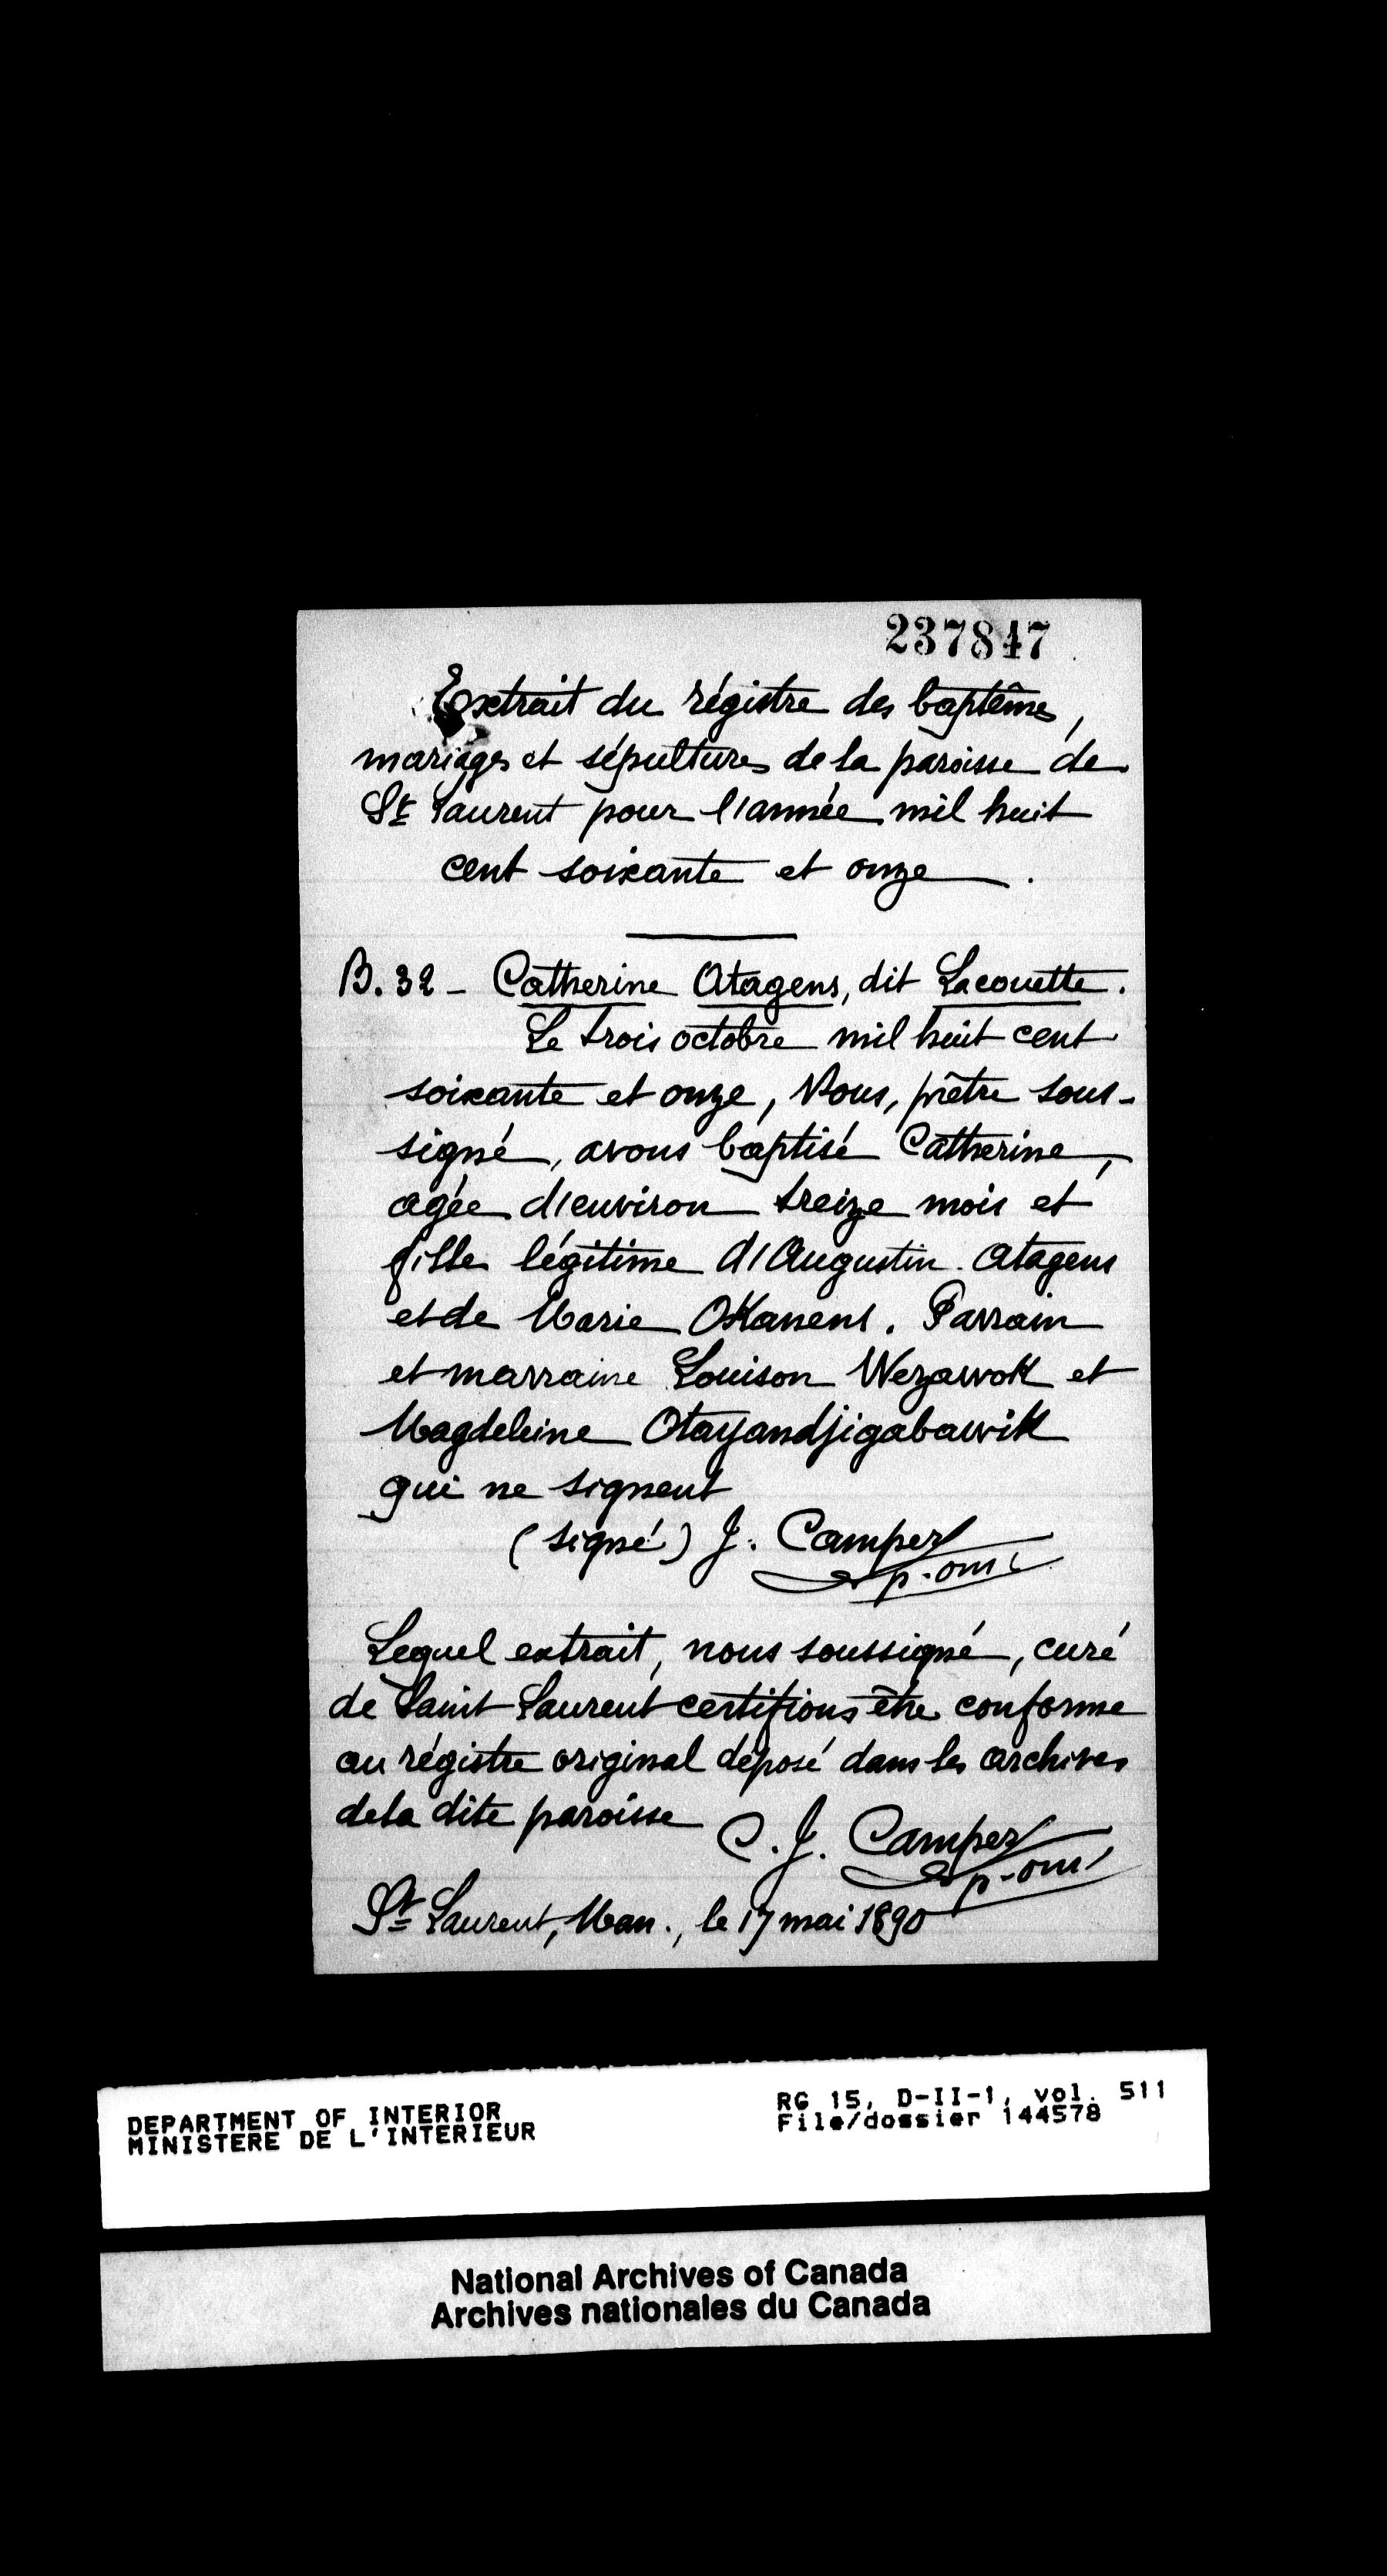 237847
Extrait du régistre des baptêmes,
mariages et sépultures de la paroisse de
St Laurent pour l'année mil huit
cent soixante et onze.
B. 32 - Catherine Atagens, dit Lacouette.
Le trois octobre mil huit cent
soixante et onze, Nous, prêtre sous-
signé, avons baptisé Catherine,
agée d'environ treize mois et
fille légitime d'Augustin Atagens
et de Marie Okanens. Parrain
et marraine Louison Wezawok et
Magdeleine Otayandjigabawik
qui ne signent
(signé) J. Camper
p. omi
Lequel extrait, nous soussigné, curé
de Saint Laurent certifions être conforme
au régistre original déposé dans les archives
de la dite paroisse
C. J. Camper
p-omi
St Laurent, Man., le 17 mai 1890
DEPARTMENT OF INTERIOR
MINISTERE DE L'INTERIEUR
RG 15, D-II-1, vol. 511
File/dossier 144578
National Archives of Canada
Archives nationales du Canada